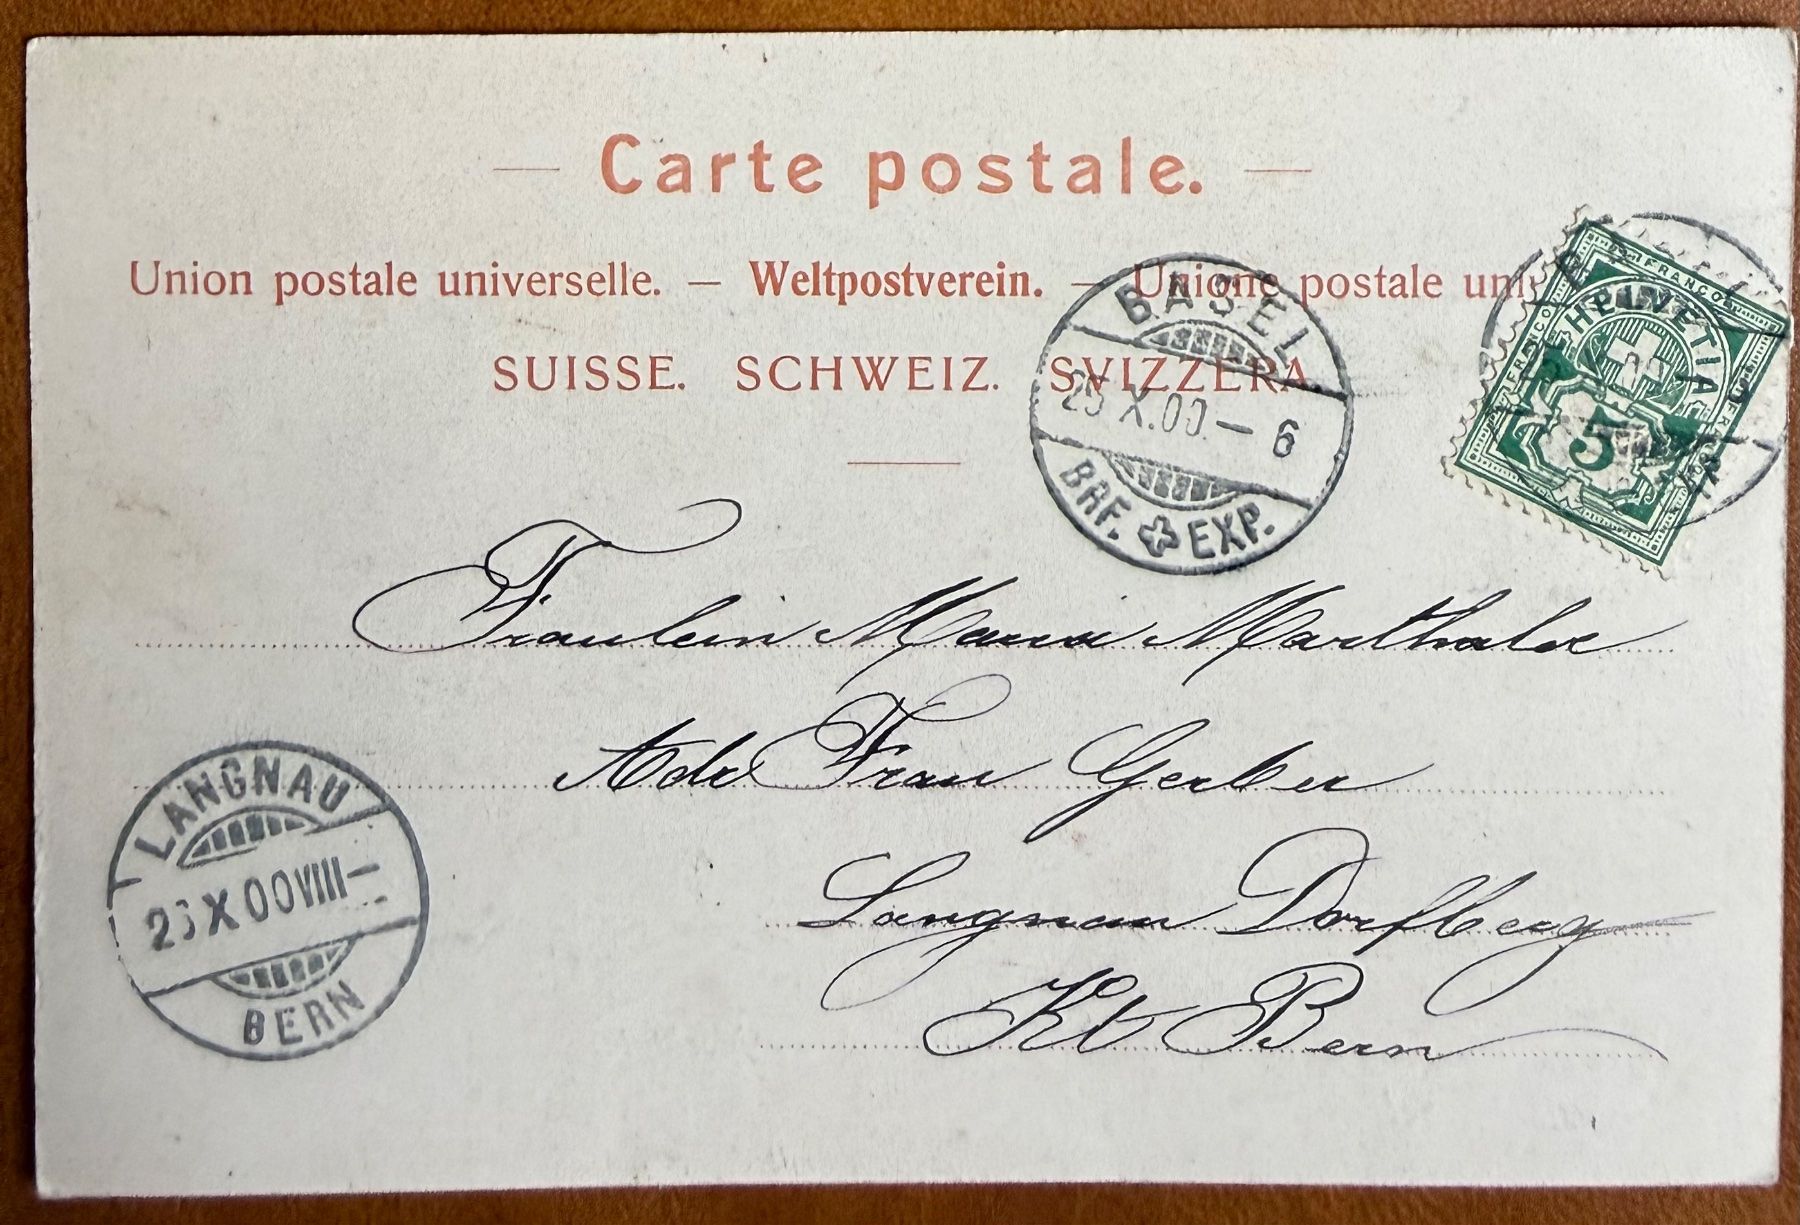 Carte postale.
Union postale universelle. — Weltpostverein. — Unione postale uni
SUISSE. SCHWEIZ. SVIZZERA
BASEL
25 X.00.—6
BRF. EXP.
FRANCO
HELVETIA
5
Fräulein Maria Marthaler
Adr Frau Gerber
Langnau Dorfberg
Kt Bern
LANGNAU
X 00 VIII—
BERN